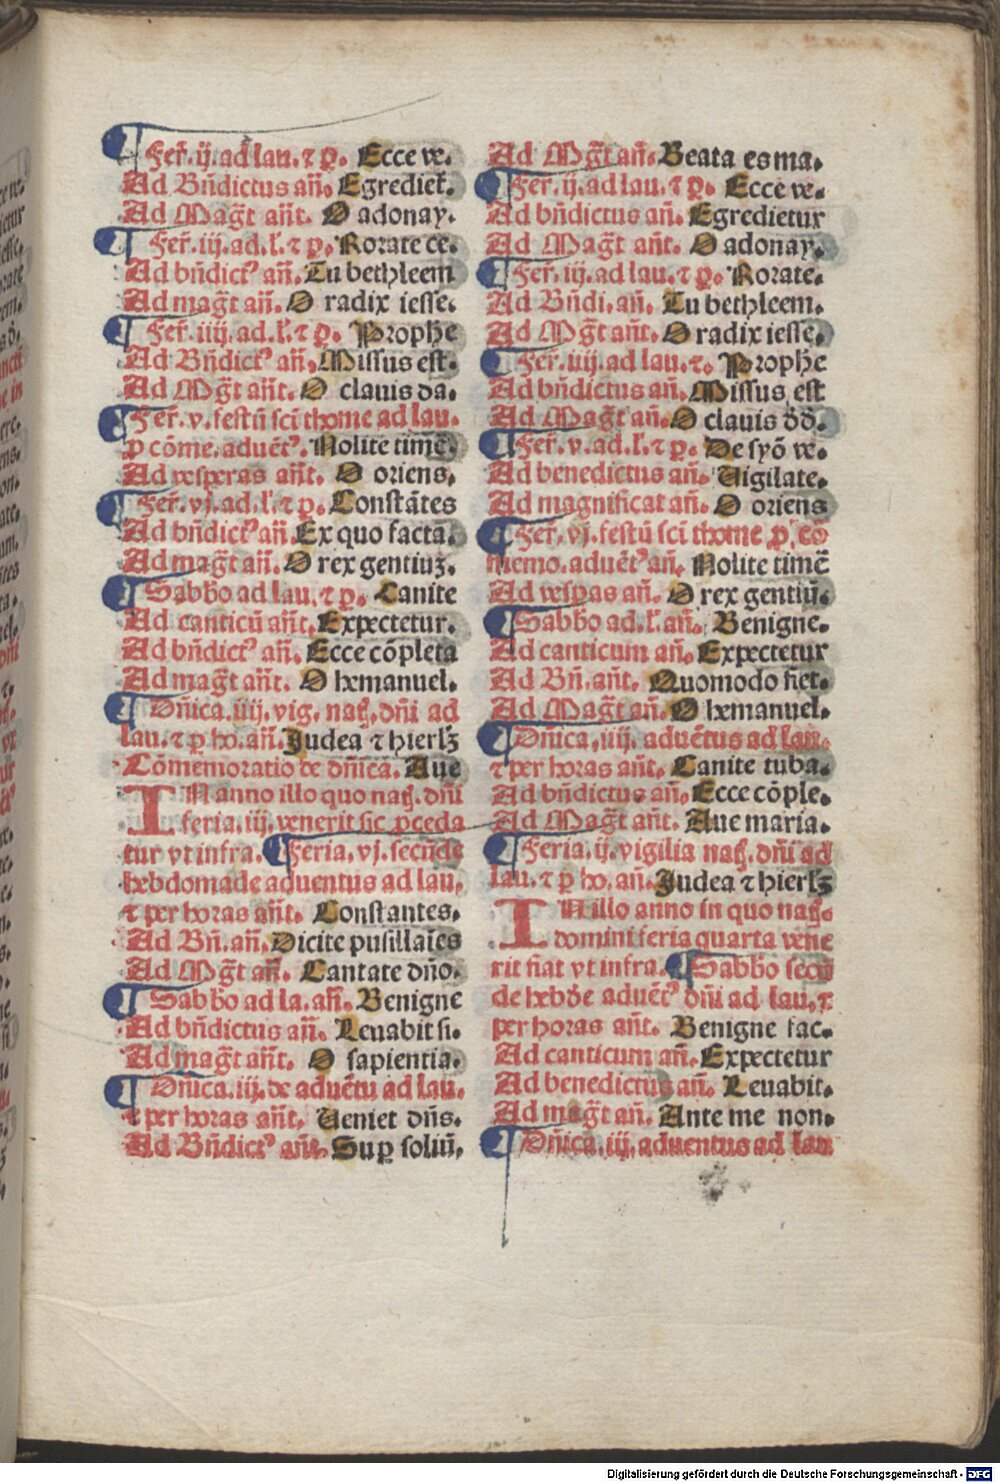 ¶ Fer̃. ij. ad lau. ⁊ ꝑ. Ecce ve.
Ad Bñdictus añ. Egrediet̃.
Ad Mag̃t añt. O adonay.
¶ Fer̃. iij. ad. l. ⁊ ꝑ. Rorate ce.
Ad bñdictꝰ añ. Tu bethleem
Ad mag̃t añ. O radix iesse.
¶ Fer̃. iiij. ad. l. ⁊ ꝑ. Prophe
Ad Bñdictꝰ añ. Missus est.
Ad Mg̃t añt. O clauis da.
¶ Fer̃. v. festũ sci thome ad lau.
ꝑ cõme. aduẽtꝰ. Nolite timẽ.
Ad vesperas añt. O oriens.
¶ Fer̃. vj. ad. l. ⁊ ꝑ. Constãtes
Ad bñdictꝰ añ. Ex quo facta.
Ad mag̃t añ. O rex gentiuʒ.
¶ Sabbo ad lau. ⁊ ꝑ. Canite
Ad canticũ añt. Expectetur.
Ad bñdictꝰ añ. Ecce cõpleta
Ad mag̃t añt. O hemanuel.
¶ Dñica. iiij. vig. natꝭ. dñi ad
lau. ⁊ ꝑ ho. añ. Judea ⁊ hierlʒ
Cõmemoratio de dñica. Aue
IN anno illo quo natꝭ. dñi
feria. iij. venerit sic ꝓceda
tur vt infra. ¶ Feria. vj. secũde
hebdomade aduentus ad lau.
⁊ per horas añt. Constantes.
Ad Bñ. añ. Dicite pusillaĩes
Ad Mg̃t añ. Cantate dño.
¶ Sabbo ad la. añ. Benigne
Ad bñdictus añ. Leuabit si.
Ad mag̃t añt. O sapientia.
¶ Dñica. iij. de aduẽtu ad lau.
⁊ per horas añt. Ueniet dñs.
Ad Bñdictꝰ añt. Suꝑ soliũ.
Ad Mg̃t añ. Beata es ma.
¶ Fer̃. ij. ad lau. ⁊ ꝑ. Ecce ve.
Ad bñdictus añ. Egredietur
Ad Mag̃t añt. O adonay.
¶ Fer̃. iij. ad lau. ⁊ ꝑ. Rorate.
Ad Bñdi. añ. Tu bethleem.
Ad Mg̃t añt. O radix iesse.
¶ Fer̃. iiij. ad lau. ⁊. Prophe
Ad bñdictus añ. Missus est
Ad Mag̃t añ. O clauis dd̃.
¶ Fer̃. v. ad. l. ⁊ ꝑ. De syõ ve.
Ad benedictus añ. Uigilate.
Ad magnificat añ. O oriens
¶ Fer̃. vj. festũ sci thome ꝑ. cõ
memo. aduẽtꝰ añ. Nolite timẽ
Ad vesꝑas añ. O rex gentiũ.
¶ Sabbo ad. l. añ. Benigne.
Ad canticum añ. Expectetur
Ad Bñ. añt. Quomodo fiet.
Ad Mag̃t añ. O hemanuel.
¶ Dñica. iiij. aduẽtus ad lau.
⁊ per horas añt. Canite tuba.
Ad bñdictus añ. Ecce cõple.
Ad Mag̃t añt. Aue maria.
¶ Feria. ij. vigilia natꝭ. dñi ad
lau. ⁊ ꝑ ho. añ. Judea ⁊ hierlʒ
IN illo anno in quo natꝭ
domini feria quarta vene
rit fiat vt infra. ¶ Sabbo secũ
de hebde aduẽtꝰ dñi ad lau. ⁊
per horas añt. Benigne fac.
Ad canticum añ. Expectetur
Ad benedictus añ. Leuabit.
Ad mag̃t añ. Ante me non.
¶ Dñica. iij. aduentus ad lau
Digitalisierung gefördert durch die Deutsche Forschungsgemeinschaft - DFG